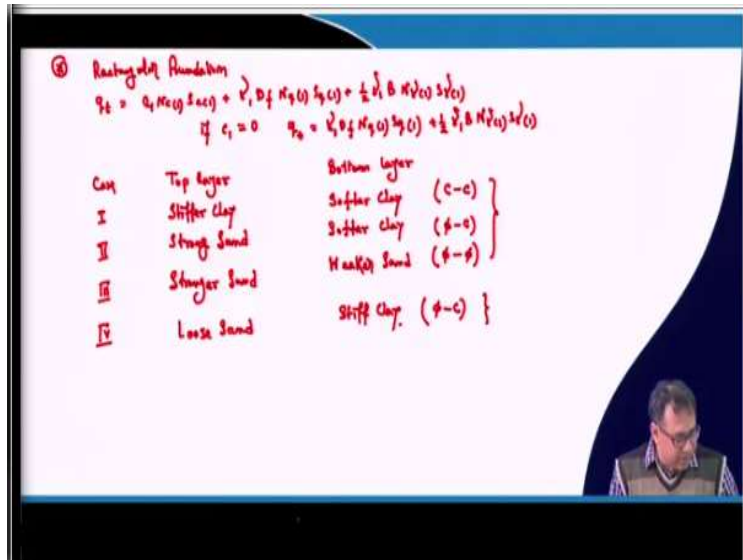 ⊛ Rectangular Foundation
qt = c1 Nc(1) Sc(1) + γ1 Df Nq(1) Sq(1) + ½ γ1 B Nγ(1) Sγ(1)
if c1 = 0 qt = γ1 Df Nq(1) Sq(1) + ½ γ1 B Nγ(1) Sγ(1)
Case Top layer Bottom layer
I Stiffer Clay Softer Clay (c-c)
II Strong Sand Softer Clay (φ-c)
III Stronger Sand Weaker Sand (φ-φ)
IV Loose Sand Stiff Clay. (φ-c)